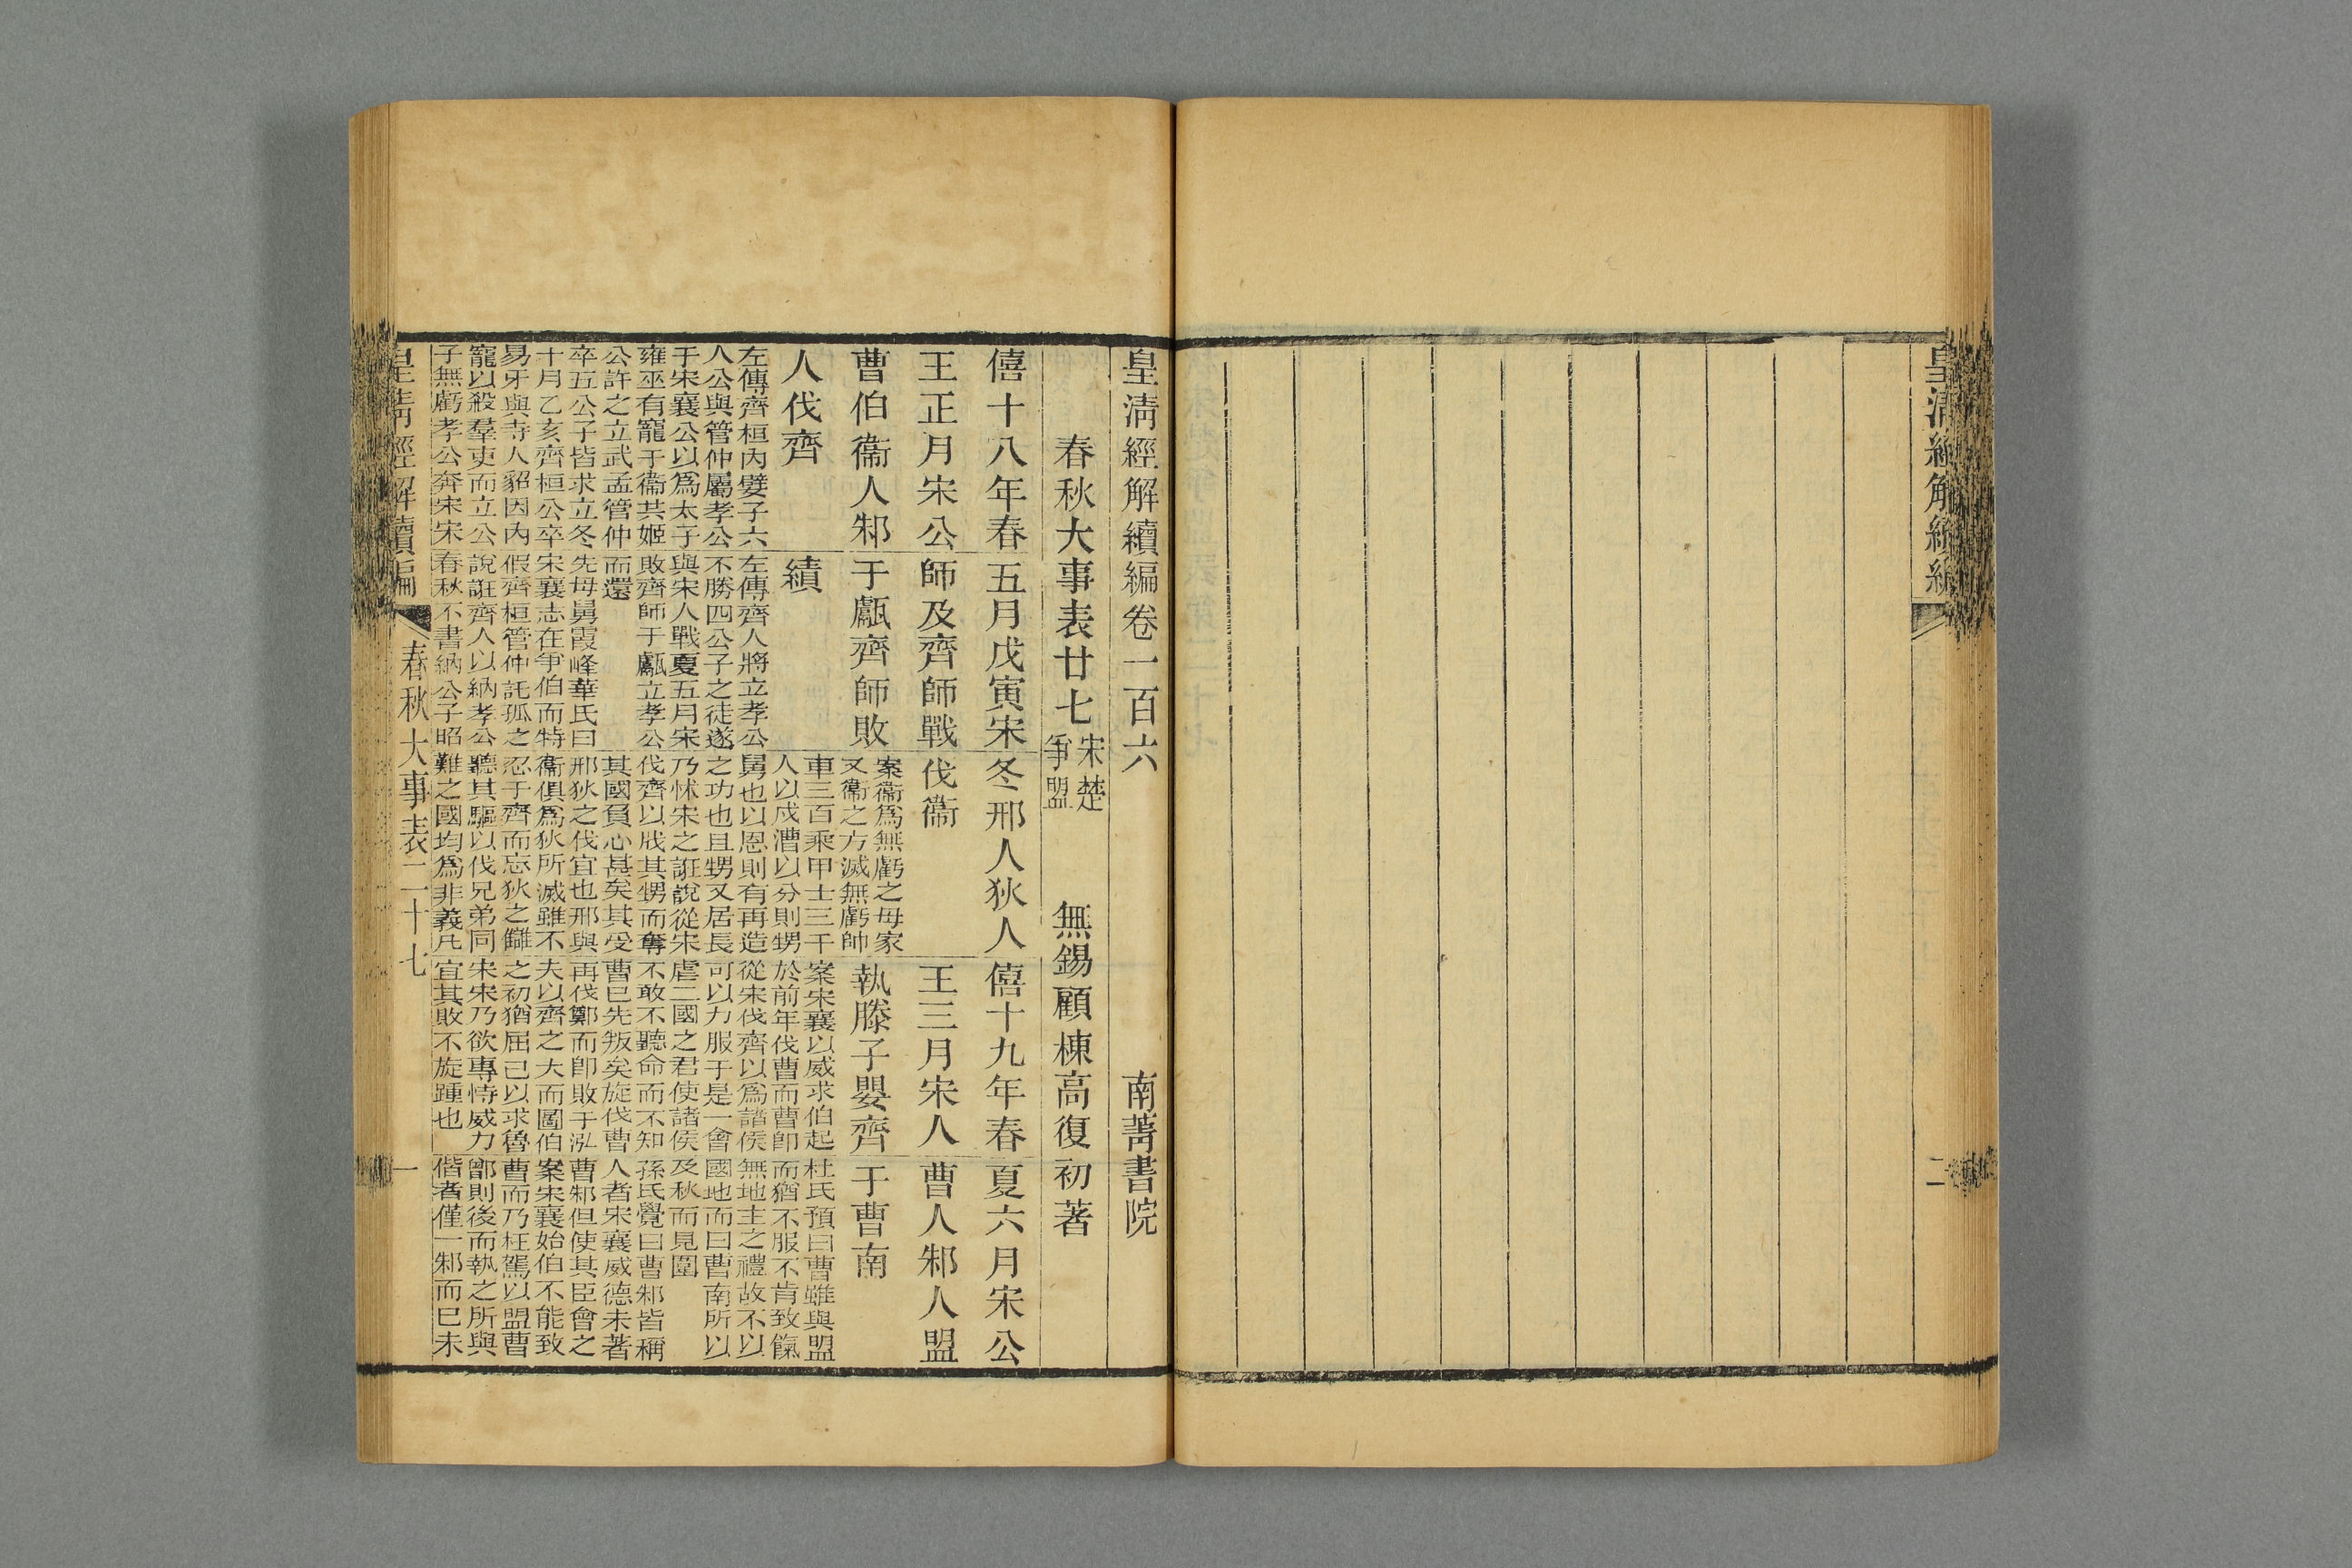 二
皇清經解續編卷一百六 南菁書院
春秋大事表廿七 宋楚爭盟 無錫顧棟高復初著
僖十八年春
王正月宋公
曹伯衞人邾
人伐齊
左傳齊桓內嬖子六
人公與管仲屬孝公
于宋襄公以爲太子
雍巫有寵于衞共姬
公許之立武孟管仲
卒五公子皆求立冬
十月乙亥齊桓公卒
易牙與寺人貂因內
寵以殺羣吏而立公
子無虧孝公奔宋宋
五月戊寅宋
師及齊師戰
于甗齊師敗
績
左傳齊人將立孝公
不勝四公子之徒遂
與宋人戰夏五月宋
敗齊師于甗立孝公
而還
先母舅霞峰華氏曰
宋襄志在爭伯而特
假齊桓管仲託孤之
說誑齊人以納孝公
春秋不書納公子昭
冬邢人狄人
伐衞
案衞爲無虧之母家
又衞之方滅無虧帥
車三百乘甲士三千
人以戍漕以分則甥
舅也以恩則有再造
之功也且甥又居長
乃怵宋之誑說從宋
伐齊以戕其甥而奪
其國負心甚矣其受
邢狄之伐宜也邢與
衞俱爲狄所滅雖不
忍于齊而忘狄之讎
聽其驅以伐兄弟同
難之國均爲非義凡
僖十九年春
王三月宋人
執滕子嬰齊
案宋襄以威求伯起
於前年伐曹而曹卽
從宋伐齊以爲諸侯
可以力服于是一會
虐二國之君使諸侯
不敢不聽命而不知
曹已先叛矣旋伐曹
再伐鄭而卽敗于泓
夫以齊之大而圖伯
之初猶屈己以求魯
宋宋乃欲專恃威力
宜其敗不旋踵也
夏六月宋公
曹人邾人盟
于曹南
杜氏預曰曹雖與盟
而猶不服不肯致餼
無地主之禮故不以
國地而曰曹南所以
及秋而見圍
孫氏覺曰曹邾皆稱
人者宋襄威德未著
曹邾但使其臣會之
案宋襄始伯不能致
曹而乃枉駕以盟曹
鄫則後而執之所與
偕者僅一邾而已未
皇清經解續編 春秋大事表二十七 一